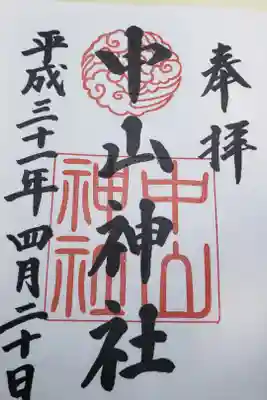 奉拝
中山神社
中山神社
平成三十一年四月二十日